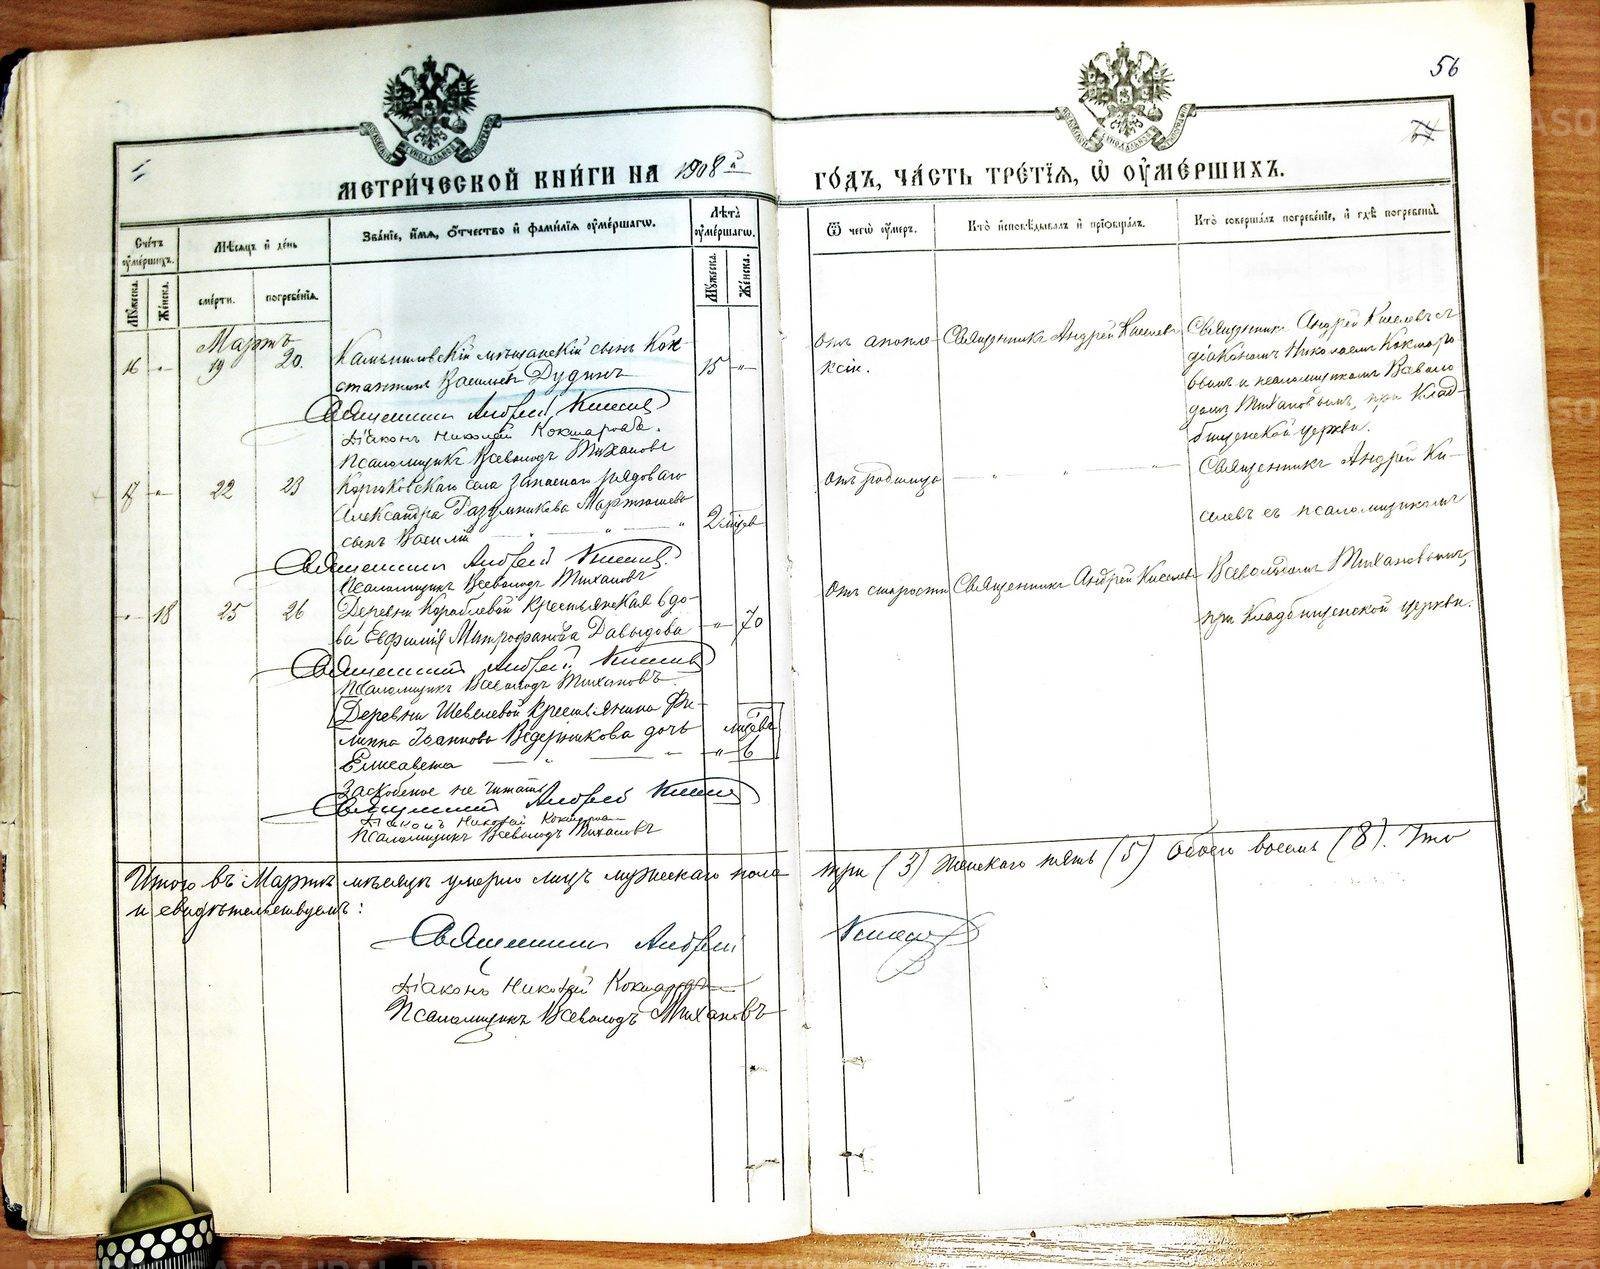 56
МЕТРИЧЕСКОЙ КНИГИ НА 1908й ГОДЪ, ЧАСТЬ ТРЕТІЯ, Ѿ ОУМЕРШИХЪ.
Счетъ оумершихъ.
Мѣсяцъ и день
Званіе, имя, отчество и фамилія оумершагѡ.
Лѣта оумершагѡ.
Ѿ чегѡ оумеръ.
Кто исповѣдывалъ и пріобщалъ.
Кто совершалъ погребеніе, и гдѣ погребены.
Мужеска.
Женска.
смерти.
погребенія.
Мужеска.
Женска.
Мартъ
16 - " - 19 20
Камышловскій мѣщанскій сынъ Кон-
стантинъ Васильевъ Дудинъ
15 - " -
отъ апопле-
ксіи.
Священникъ Андрей Киселевъ
Священникъ Андрей Киселевъ съ
діакономъ Николаемъ Кокшаро
вымъ и псаломщикомъ Всеволо
домъ Тихановымъ, при Клад-
бищенской церкви.
Священникъ Андрей Киселевъ
Діаконъ Николай Кокшаровъ.
Псаломщикъ Всеволодъ Тихановъ
17 - " - 22 23
села запаснаго рядоваго
Александра Разумникова Мартюшева
сынъ Василій
2 мѣсяц
отъ родимца
Священникъ Андрей Ки-
селевъ съ псаломщикомъ
Всеволодомъ Тихановымъ,
при Кладбищенской церкви.
Священникъ Андрей Киселевъ
Псаломщикъ Всеволодъ Тихановъ
- " - 18 25 26
Деревни Кораблевой крестьянская вдо-
ва Евфимія Митрофанова Давыдова
- " - 70
отъ старости
Священникъ Андрей Киселевъ
Священникъ Андрей Киселевъ
Псаломщикъ Всеволодъ Тихановъ
[Деревни Шевелевой крестьянина Фи-
липпа Іоаннова Ведерникова дочь
Елисавета
- " - 6]
Заскобеное не читать
Священникъ Андрей Киселевъ
Діаконъ Николай Кокшаровъ
Псаломщикъ Всеволодъ Тихановъ
Итого въ Мартѣ мѣсяцѣ умерло лицъ мужескаго пола три (3) Женскаго пять (5) Обоего восемь (8). Что
и свидѣтельствуемъ:
Священникъ Андрей Киселевъ
Діаконъ Николай Кокшаровъ
Псаломщикъ Всеволодъ Тихановъ